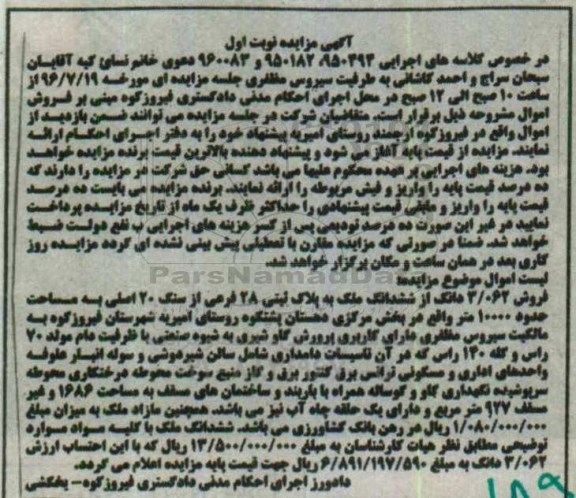 آگهی مزایده نوبت اول
در خصوص کلاسه های اجرایی ۹۵۰۳۹۳، ۹۵۰۱۸۲ و ۹۶۰۰۸۳ دعوی خانم نسائ کیه آقایان
سبحان سراج و احمد کاشانی به طرفیت سیروس مظفری جلسه مزایده ای مورخه ۹۶/۷/۱۹ از
ساعت ۱۰ صبح الی ۱۲ صبح در محل اجرای احکام مدنی دادگستری فیروزکوه مبنی بر فروش
اموال مشروحه ذیل برقرار است. متقاضیان شرکت در جلسه مزایده می توانند ضمن بازدید از
اموال واقع در فیروزکوه ارجمند روستای امیریه پیشنهاد خود را به دفتر اجرای احکام ارائه
نمایند. مزایده از قیمت پایه آغاز می شود و پیشنهاد دهنده بالاترین قیمت برنده مزایده خواهد
بود. هزینه های اجرایی بر عهده محکوم علیها می باشد کسانی حق شرکت در مزایده را دارند که
ده درصد قیمت پایه را واریز و فیش مربوطه را ارائه نمایند. برنده مزایده می بایست ده درصد
قیمت پایه را واریز و مابقی قیمت پیشنهادی را حداکثر ظرف یک ماه از تاریخ مزایده پرداخت
نمایید در غیر این صورت ده درصد تودیعی پس از کسر هزینه های اجرایی ب نفع دولت ضبط
خواهد شد. ضمنا در صورتی که مزایده مقارن با تعطیلی پیش بینی نشده ای گردد مزایده روز
کاری بعد در همان ساعت و مکان برگزار خواهد شد.
ParsNamadData
لیست اموال موضوع مزایده:
فروش ۳/۰۶۲ دانگ از ششدانگ ملک به پلاک ثبتی ۲۸ فرعی از سنگ ۲۰ اصلی به مساحت
حدود ۱۰۰۰۰ متر واقع در بخش مرکزی دهستان پشتکوه روستای امیریه شهرستان فیروزکوه به
مالکیت سیروس مظفری دارای کاربری پرورش گاو شیری به شیوه صنعتی با ظرفیت دام مولد ۷۰
راس و کله ۱۴۰ راس که در آن تاسیسات دامداری شامل سالن شیردوشی و سوله انبار علوفه
واحدهای اداری و مسکونی ترانس برق کنتور برق و گاز منبع سوخت محوطه درختکاری محوطه
سرپوشیده نگهداری گاو و گوساله همراه با باربند و ساختمان های مسقف به مساحت ۱۶۸۶ و غیر
مسقف ۹۲۷ متر مربع و دارای یک حلقه چاه آب نیز می باشد. همچنین مازاد ملک به میزان مبلغ
۱/۰۸۰/۰۰۰/۰۰۰ ریال در رهن بانک کشاورزی می باشد. ششدانگ ملک با کلیه مواد مواره
توضیحی مطابق نظر هیات کارشناسان به مبلغ ۱۳/۵۰۰/۰۰۰/۰۰۰ ریال که با این احتساب ارزش
۳/۰۶۲ دانگ به مبلغ ۶/۸۹۱/۱۹۷/۵۹۰ ریال جهت قیمت پایه مزایده اعلام می گردد.
دادورز اجرای احکام مدنی دادگستری فیروزکوه – یخکشی